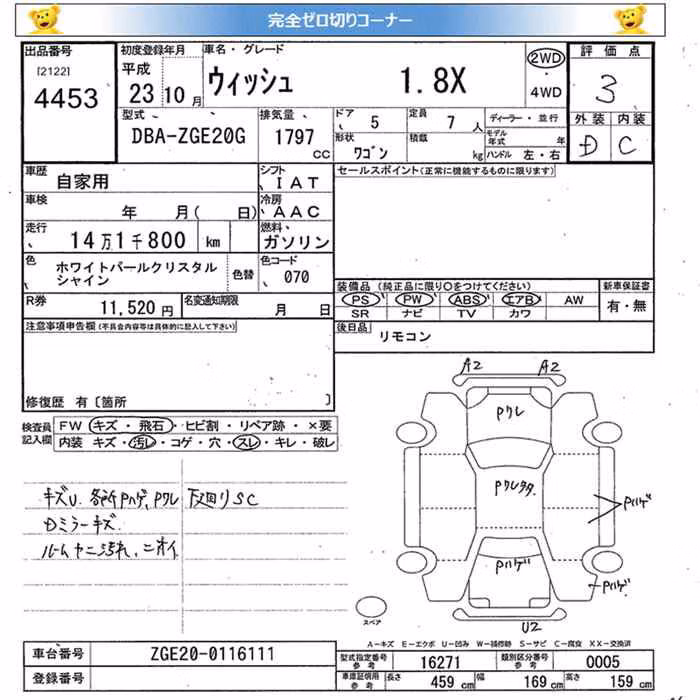 完全ゼロ切りコーナー
出品番号 初度登録年月 車名・グレード 評価点
[2122] 4453 平成 23 10月 ウィッシュ 1.8X 2WD ・ 4WD 3
型式 DBA-ZGE20G 排気量 1797 cc ドア 5 定員 7 人 ディーラー・並行 外装 内装
形状 ワゴン 積載 kg モデル年式 年 ハンドル 左・右 D C
車歴 自家用 シフト IAT セールスポイント(正常に機能するものに限ります)
車検 年 月( 日) 冷房 AAC
走行 14万1千800 km 燃料 ガソリン
色 ホワイトパールクリスタルシャイン 色替 色コード 070
装備品(純正品に限り○をつけてください) 新車保証書
R券 11,520円 名変通知期限 月 日 PS PW ABS エアB AW 有・無
SR ナビ TV カワ
注意事項申告欄(不具合内容等は具体的に記入して下さい) 後日品 リモコン
修復歴 有〔箇所 〕
検査員記入欄 FW キズ・飛石・ヒビ割・リペア跡・×要
内装 キズ・汚レ・コゲ・穴・スレ・キレ・破レ
キズU. 各所Pハゲ、Pクレ 下回りSC
Dミラーキズ.
ルームヤニ汚れ、ニオイ
A2 A2
Pクレ
Pクレ
Pハゲ
Pハゲ
Pハゲ
U2
スペア
A-キズ E-エクボ U-凹み W-補修跡 S-サビ C-腐食 XX-交換済
車台番号 ZGE20-0116111 型式指定番号 参考 16271 類別区分番号 参考 0005
登録番号 車庫証明用 参考 長さ 459 cm 幅 169 cm 高さ 159 cm